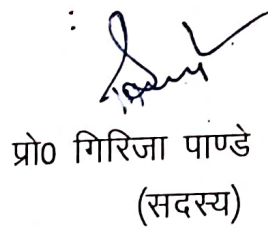 प्रो0 गिरिजा पाण्डे
(सदस्य)